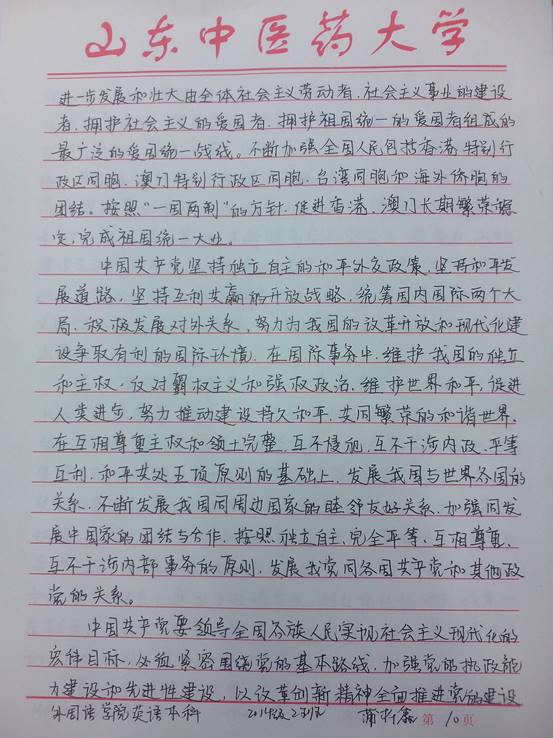 山东中医药大学
进一步发展和壮大由全体社会主义劳动者、社会主义事业的建设
者、拥护社会主义的爱国者、拥护祖国统一的爱国者组成的
最广泛的爱国统一战线。不断加强全国人民包括香港特别行
政区同胞、澳门特别行政区同胞、台湾同胞和海外侨胞的
团结。按照“一国两制”的方针，促进香港、澳门长期繁荣稳
定，完成祖国统一大业。
中国共产党坚持独立自主的和平外交政策，坚持和平发
展道路，坚持互利共赢的开放战略，统筹国内国际两个大
局，积极发展对外关系，努力为我国的改革开放和现代化建
设争取有利的国际环境。在国际事务中，维护我国的独立
和主权，反对霸权主义和强权政治，维护世界和平，促进
人类进步，努力推动建设持久和平、共同繁荣的和谐世界。
在互相尊重主权和领土完整、互不侵犯、互不干涉内政、平等
互利、和平共处五项原则的基础上，发展我国与世界各国的
关系。不断发展我国同周边国家的睦邻友好关系，加强同发
展中国家的团结与合作。按照独立自主、完全平等、互相尊重、
互不干涉内部事务的原则，发展我党同各国共产党和其他政
党的关系。
中国共产党要领导全国各族人民实现社会主义现代化的
宏伟目标，必须紧密围绕党的基本路线，加强党的执政能
力建设和先进性建设，以改革创新精神全面推进党的建设
外国语学院英语本科 2014级2班 蒲 鑫 第 10 页